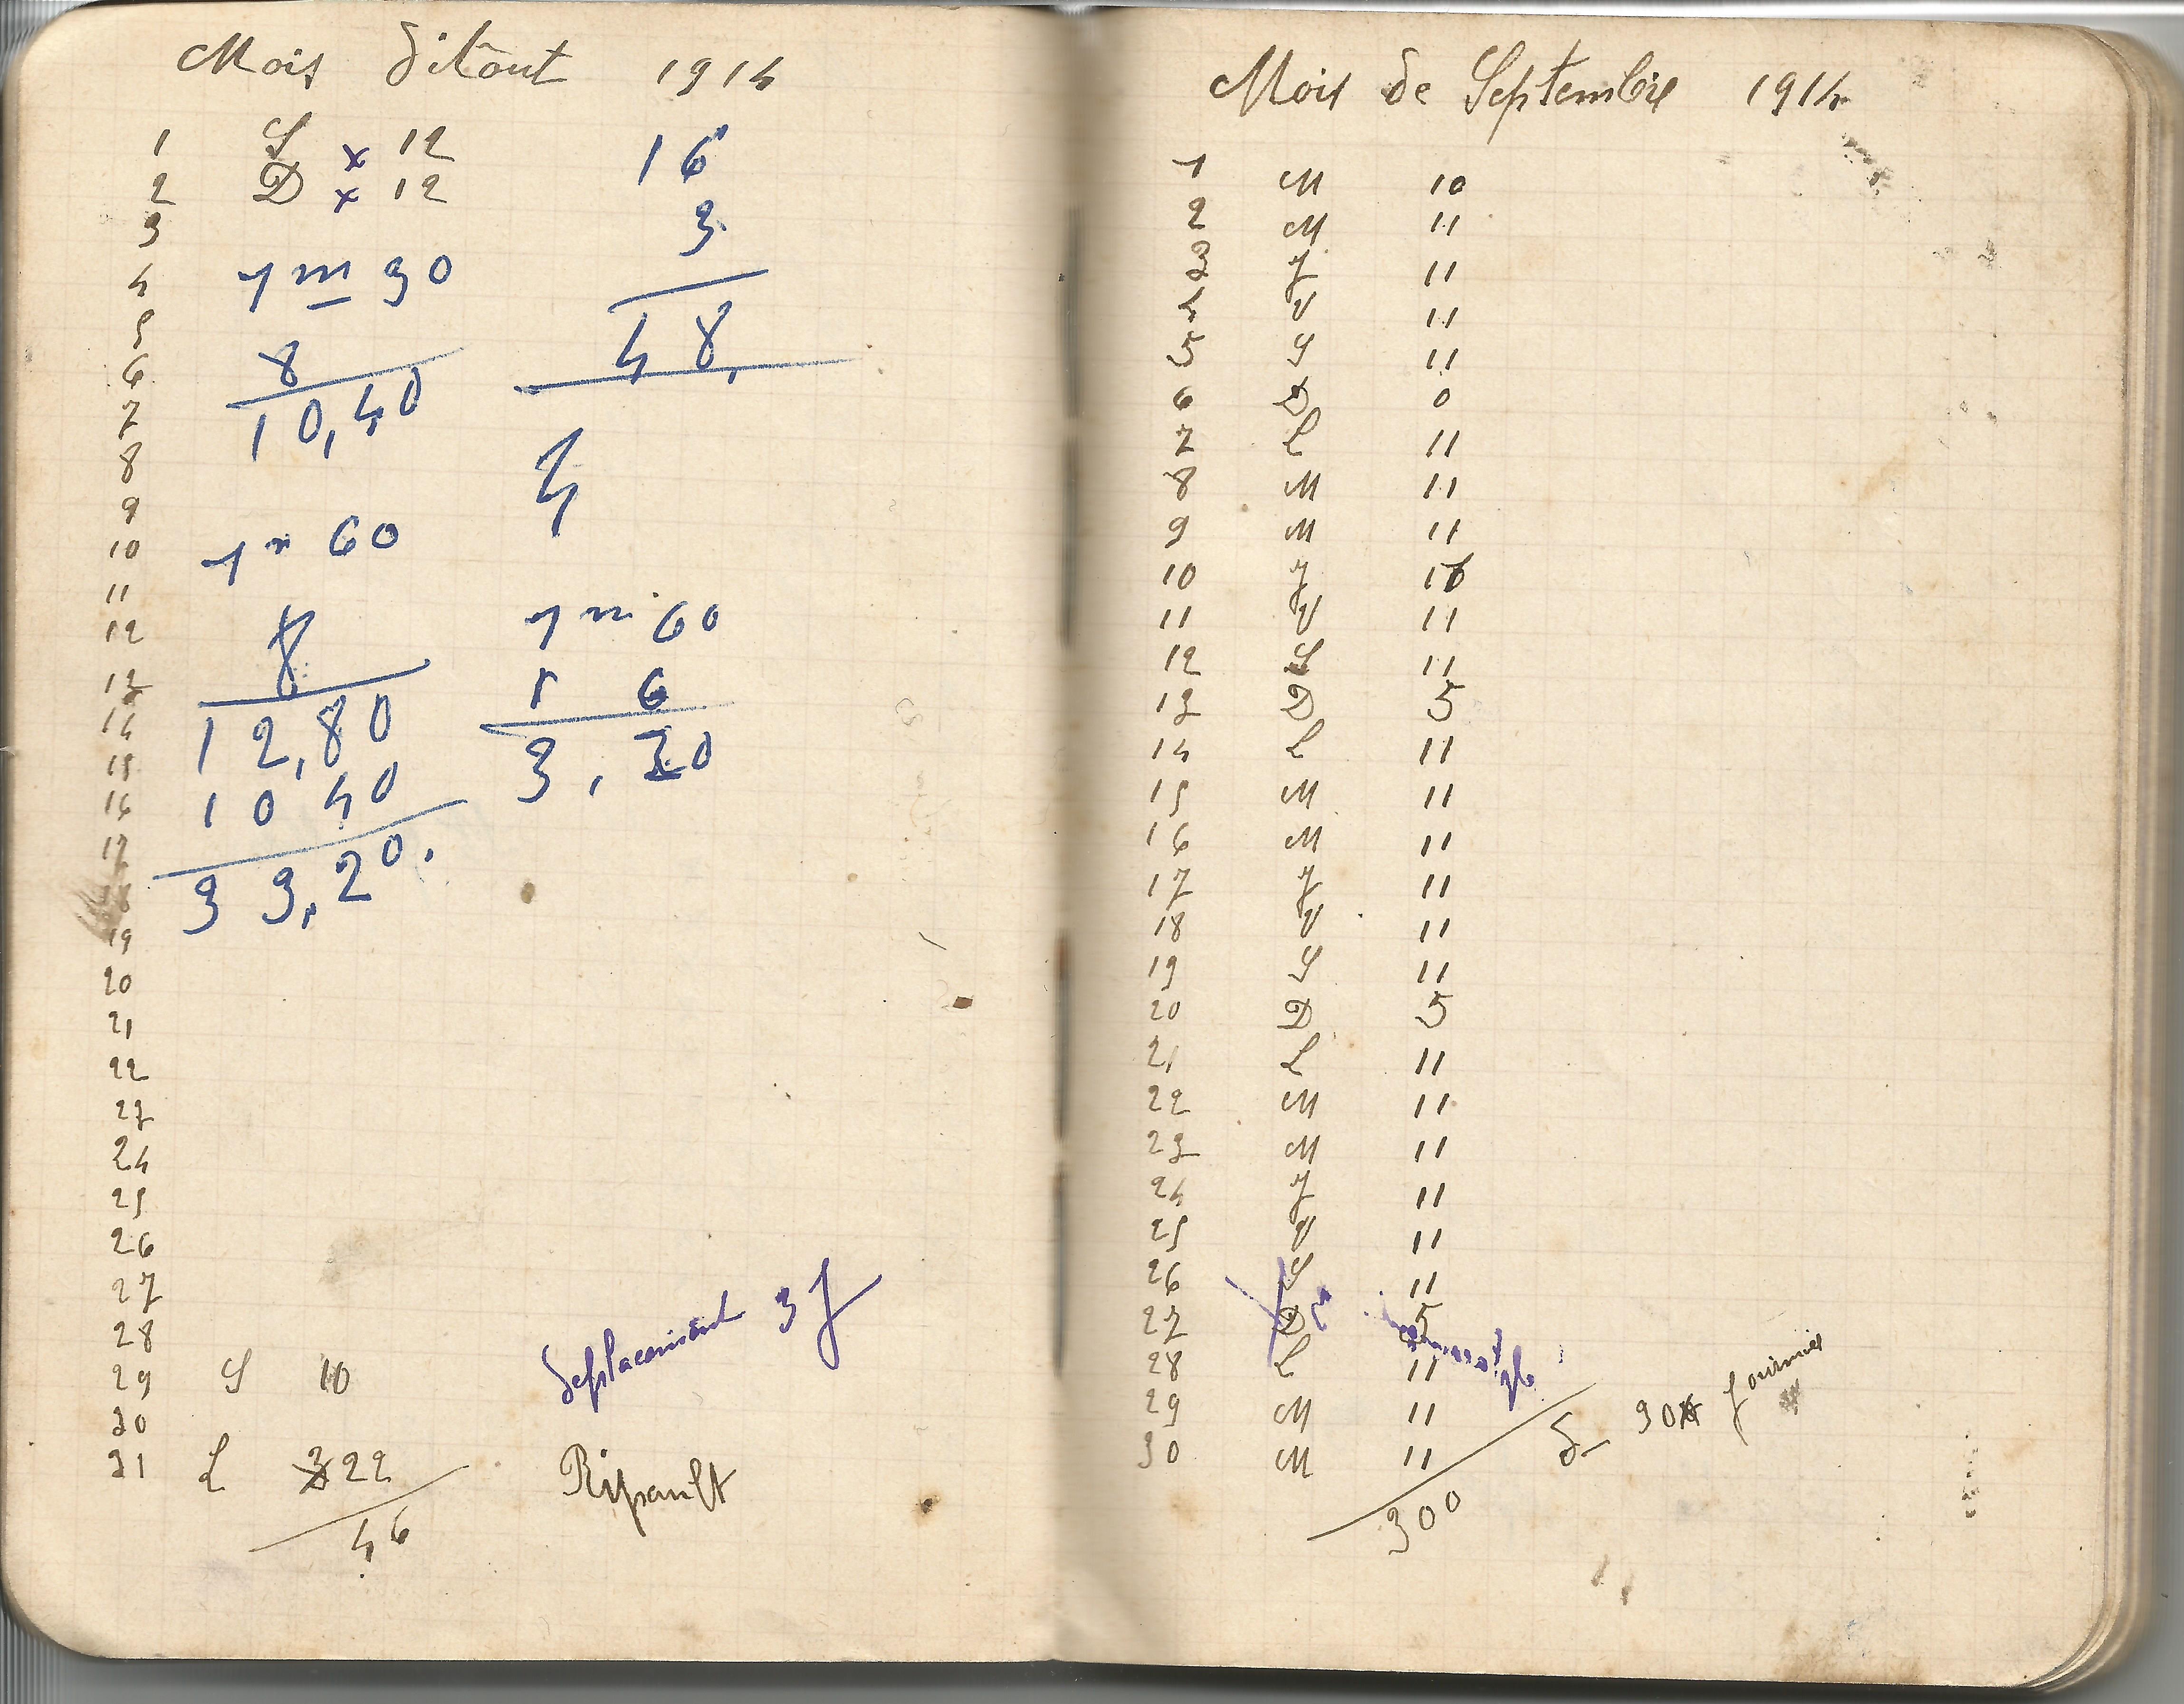 Mois d'Aout 1914
1 S x 12
2 D x 12
3
4
5
6
7
8
9
10
11
12
13
14
15
16
17
18
19
20
21
22
23
24
25
26
27
28
29 S 10
30
31 L 22
46
1 m 30
8
10,40
1 m 60
8
12,80
10 40
33,20.
16
3
48,
1 m 60
6
3, 20
deplacement 3 J
Ripault
Mois de Septembre 1914
1 M 10
2 M 11
3 J 11
4 V 11
5 S 11
6 D 0
7 L 11
8 M 11
9 M 11
10 J 16
11 V 11
12 S 11
13 D 5
14 L 11
15 M 11
16 M 11
17 J 11
18 V 11
19 S 11
20 D 5
21 L 11
22 M 11
23 M 11
24 J 11
25 V 11
26 S 11
27 D 5
28 L 11
29 M 11
30 M 11
300
30 Journées